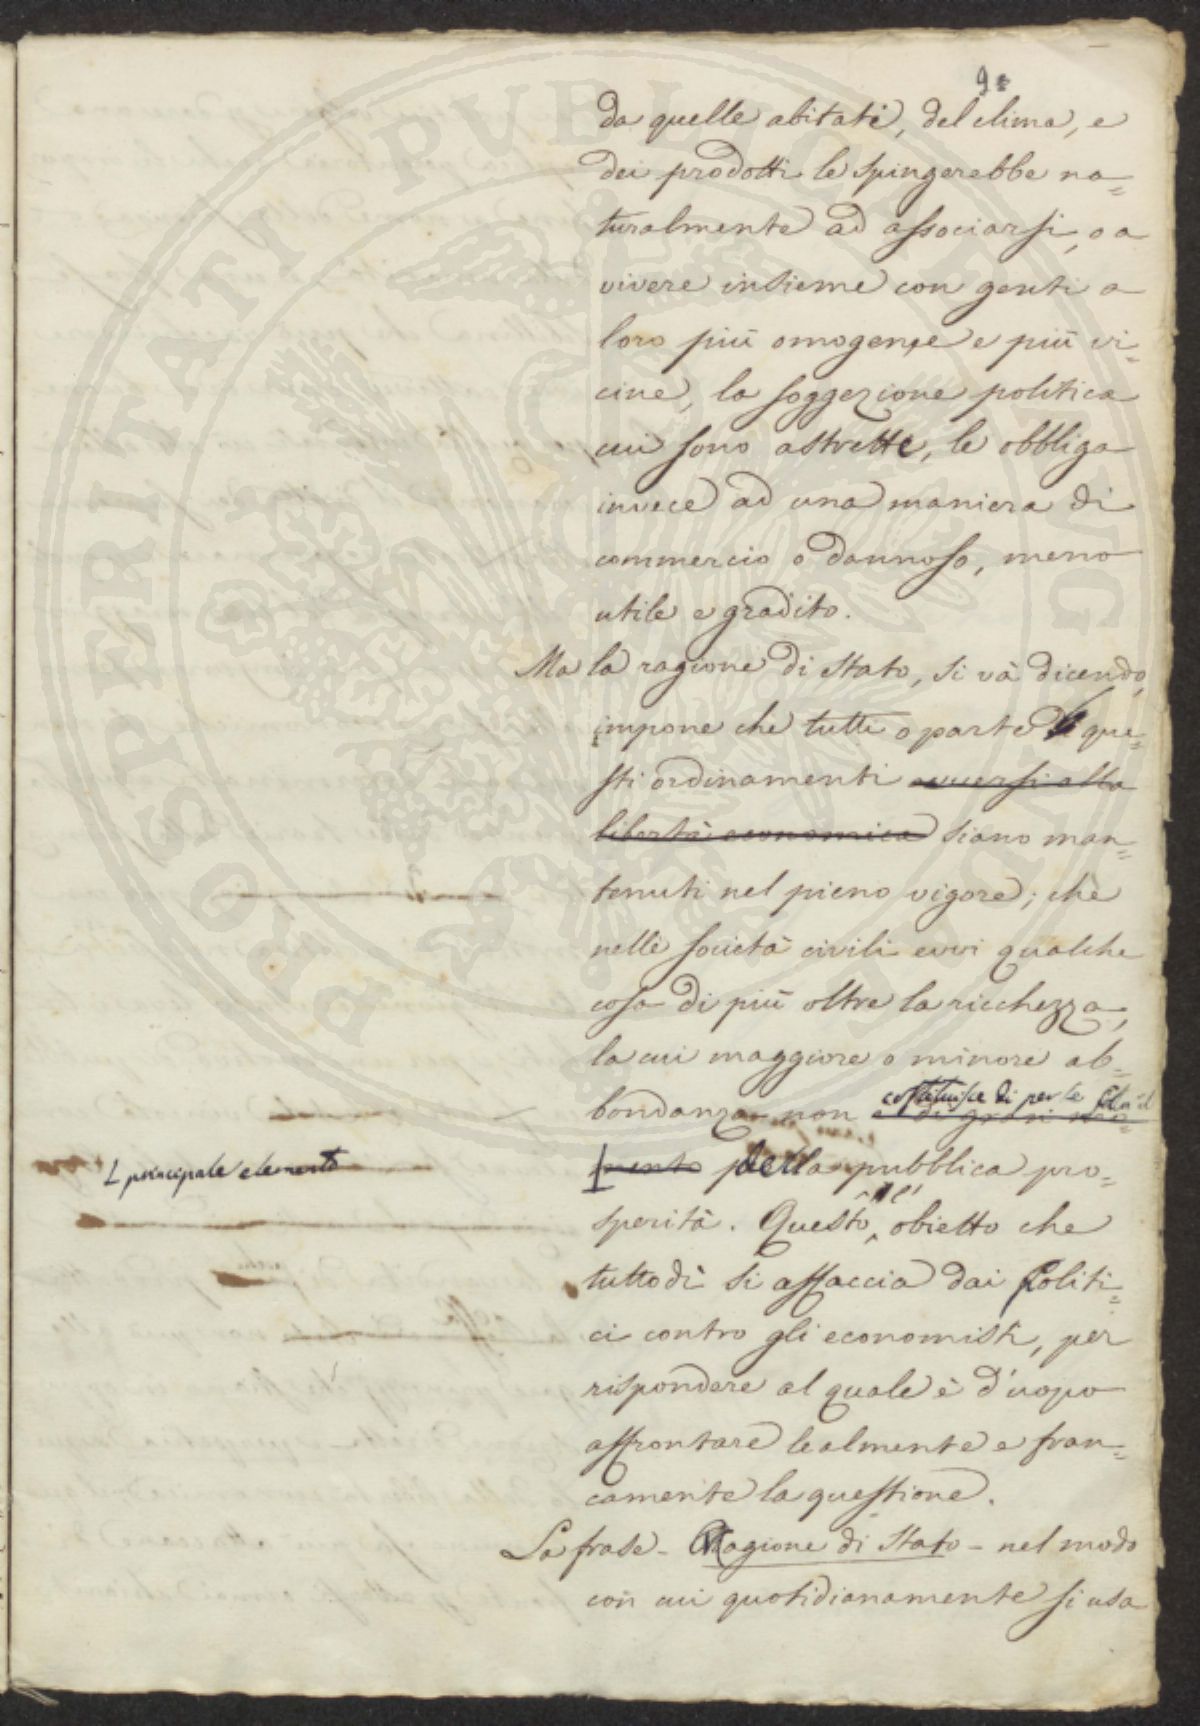 9
da quelle abitati, del clima, e
dei prodotti le spingerebbe na=
turalmente ad associarsi, o a
vivere insieme con genti a
loro più omogenee e più vi=
cine, la soggezione politica
cui sono astrette, le obbliga
invece ad una maniera di
commercio o dannoso, meno
utile e gradito.
Ma la ragione di Stato, si và dicendo,
impone che tutti o parte di que=
sti ordinamenti avversi alla
libertà economica siano man=
tenuti nel pieno vigore; chè
nelle società civili evvi qualche
cosa di più oltre la ricchezza,
la cui maggiore o minore ab=
costituisce di per se solo il
bondanza non è di gran mo=
L principale elemento
mento della pubblica pro=
sperità. Questo è l' obietto che
tuttodì si affaccia dai Politi=
ci contro gli economisti, per
rispondere al quale è d'uopo
affrontare lealmente e fran=
camente la questione.
La frase - Ragione di Stato - nel modo
con cui quotidianamente si usa
PROSPERITATI PUBLICAE